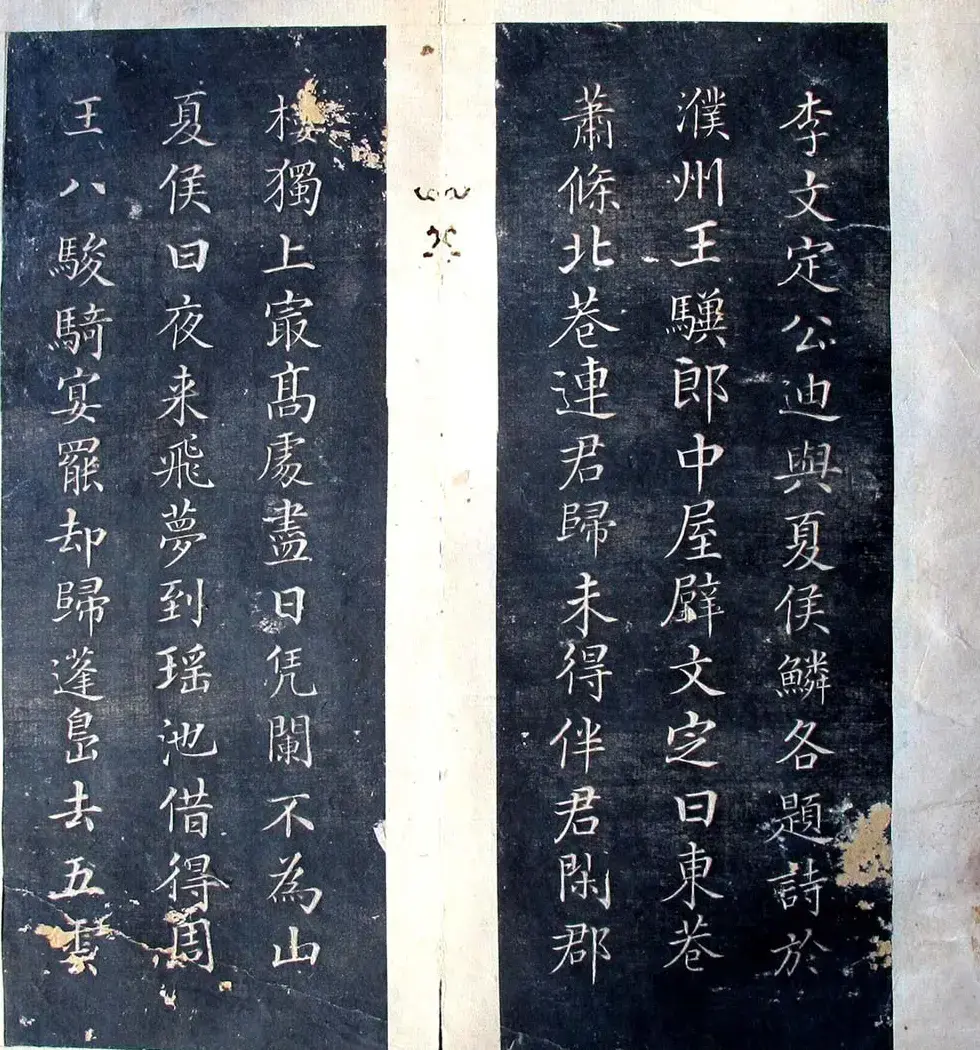 李文定公迪與夏侯鱗各題詩於
濮州王驥郎中屋壁文定曰東巷
蕭條北巷連君歸未得伴君閑郡
樓獨上㝡髙處盡日凭闌不為山
夏侯曰夜来飛夢到瑶池借得周
王八駿騎宴罷却歸蓬島去五雲